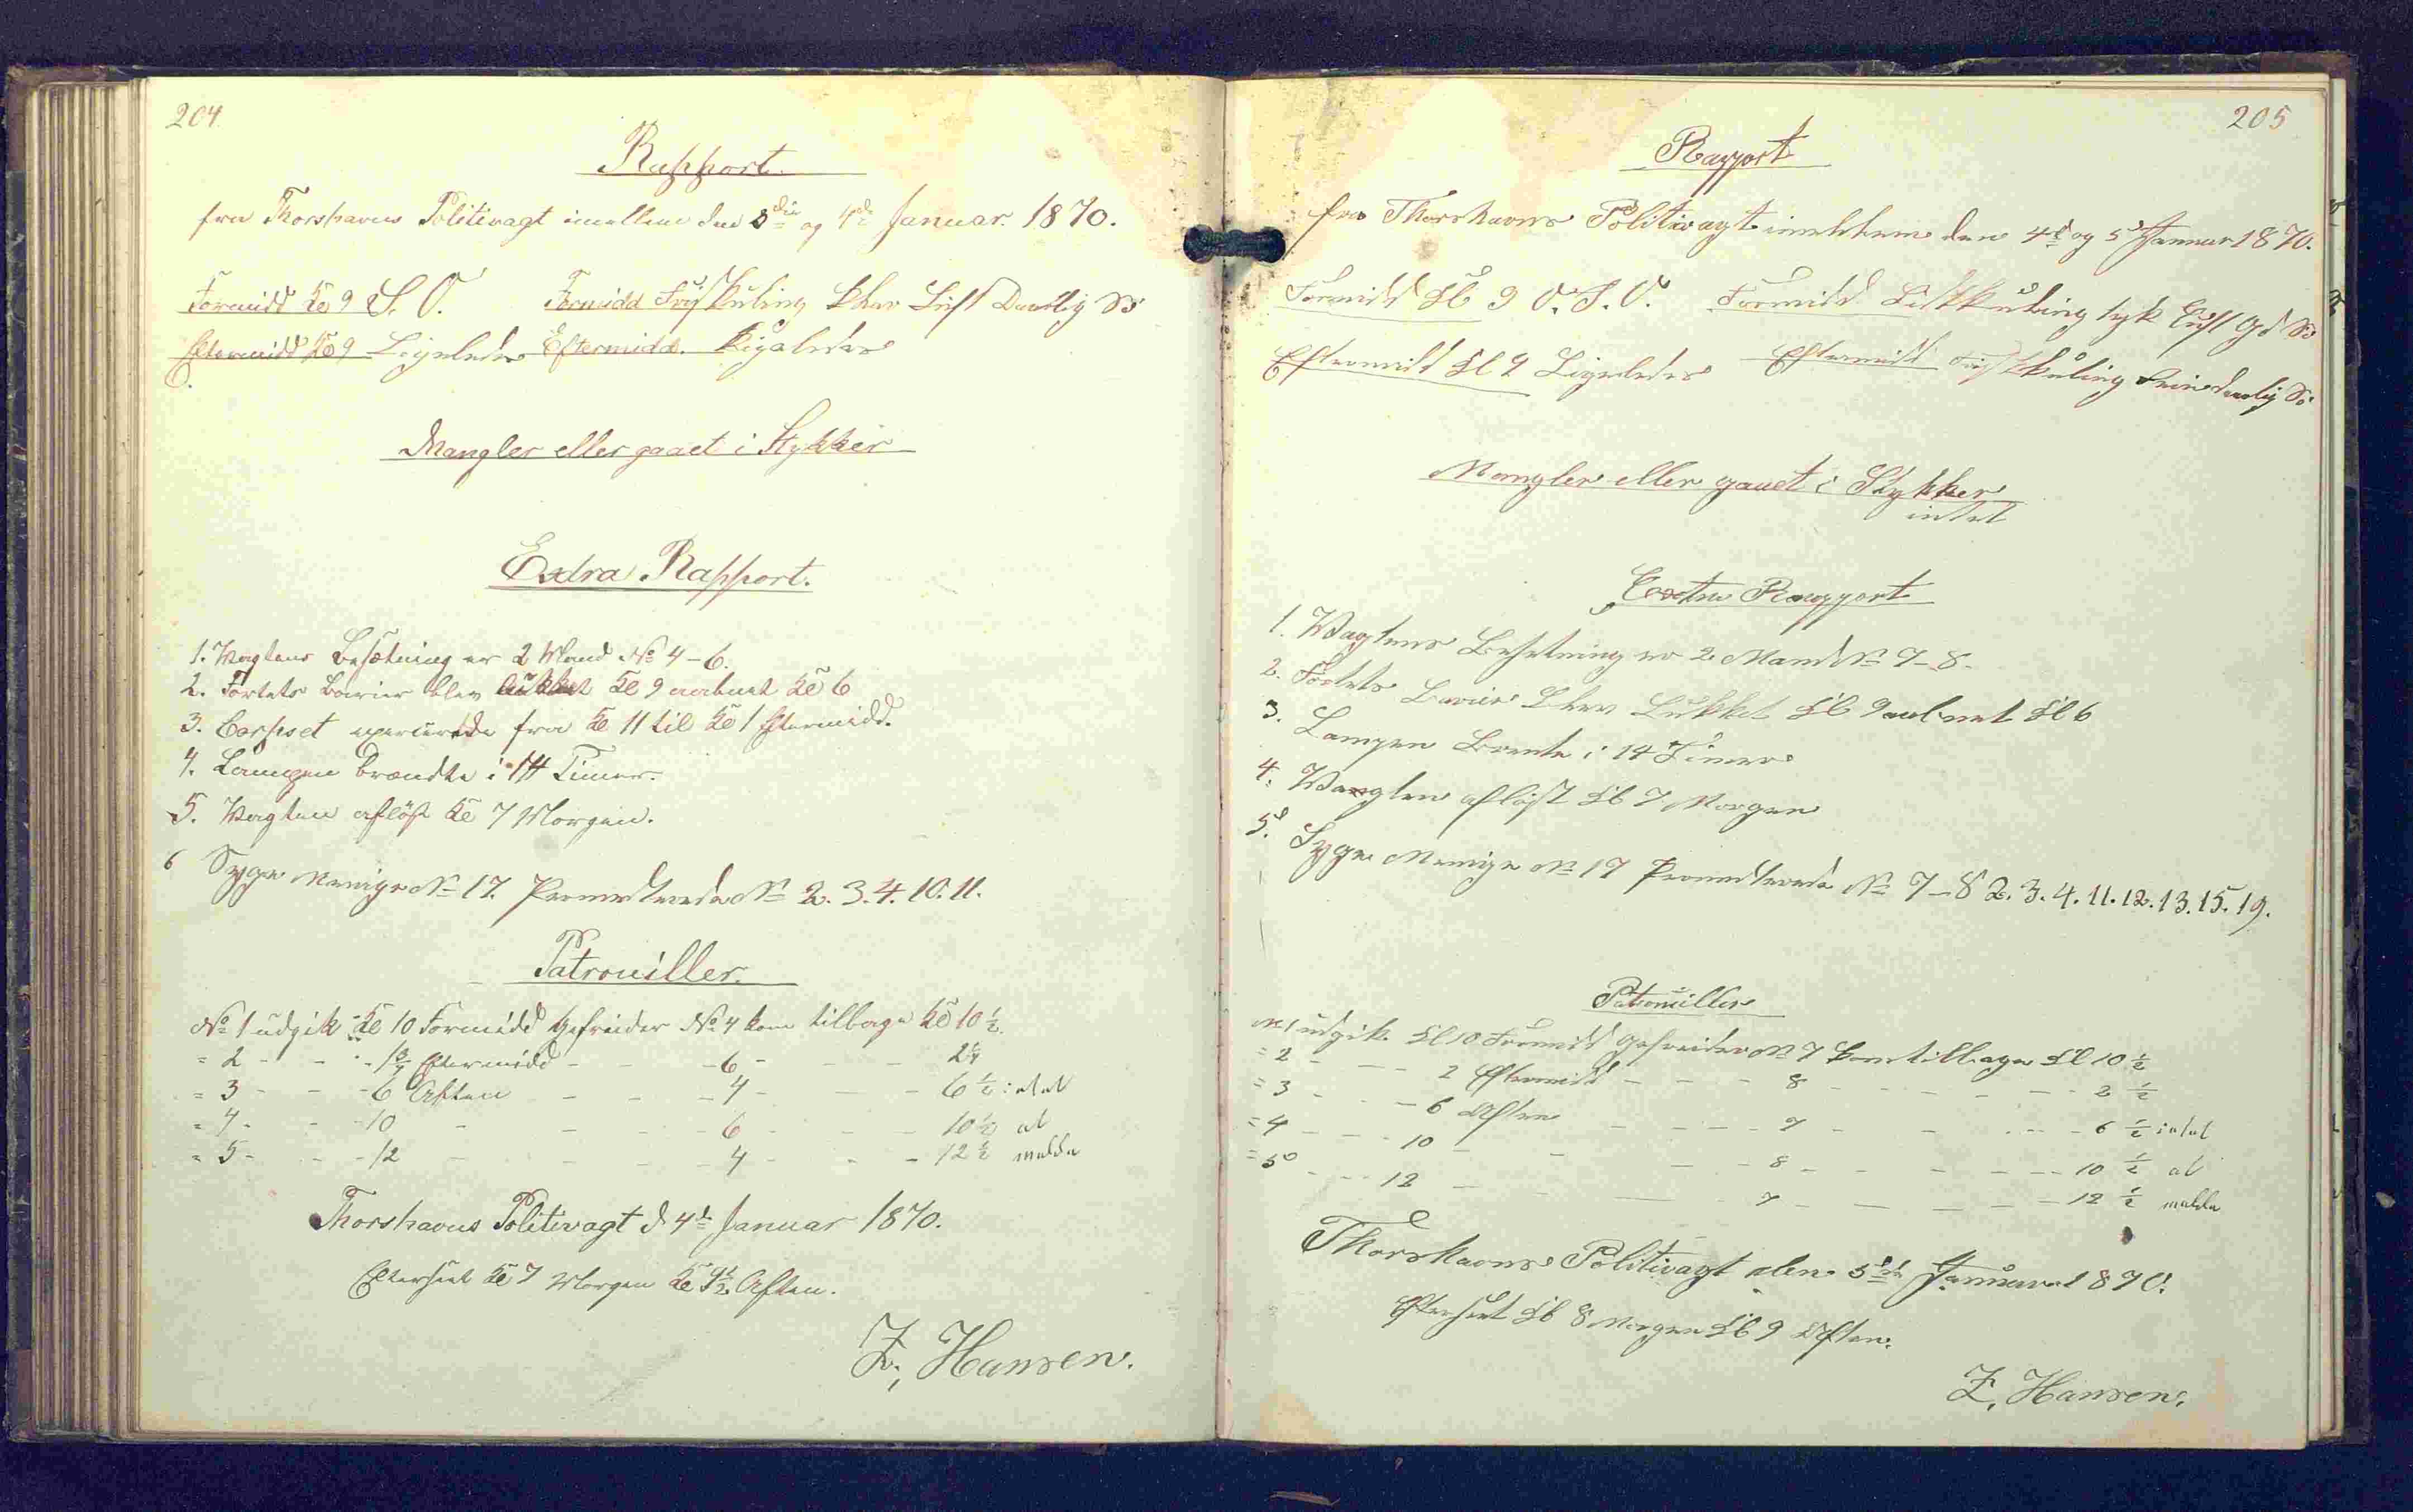 204
Rapport.
fra Thorshavns Politivagt imellem den 3die og 4de Januar. 1870.
Formidd Kl 9 S. O. Formidd Frisk Kuling klar Luft Daarlig Sö
Eftermidd Kl 9 Ligeledes Eftermidd. Ligeledes
Mangler eller gaaet i Stykker
Extra Rapport.
1. Vagtens Besætning er 2 Mand No 4-6.
2. Fortets Barier blev lukket Kl 9 aabnet Kl 6
3. Corpset exercerede fra Kl 11 til Kl 1 Eftermidd.
4. Lampen brændte i 14 Timer.
5. Vagten aflöst Kl 7 Morgen.
6 Syge Menige No 17. Permitterede No 2. 3. 4. 10. 11.
Patrouiller.
No 1 udgik Kl 10 Formidd Gefreider No 4 kom tilbage Kl 10 1/2.
= 2 - - - 1 3/4 Eftermidd - - 6 - - - 2 1/4
= 3 - - - 6 Aften - - - 4 - - - 6 1/2 intet
= 4 - - - 10 - - - - 6 - - - 10 1/2 at
= 5 - - - 12 - - - - 4 - - - 12 1/2 melde
Thorshavns Politivagt d 4de Januar 1870.
Efterseet Kl 7 Morgen Kl 9 1/2 Aften.
Z. Hansen.
205
Rapport
fra Thorshavns Politivagt imellem den 4d og 5 Januar 1870.
Formidd Kl 9 O. S. O. Formidd Laskkuling tyk Luft Gd Sö
Eftermidd Kl 9 Ligeledes Eftermidd Friskkuling daarlig Sö
Mangler eller gaaet i Stykker
intet
Extra Rapport
1. Vagtens Besetning er 2 Mand No 7-8.
2. Fortets Barier blev Lukket Kl 9 aabnet Kl 6
3. Lampen Brente i 14 Timer
4. Vagten aflöst Kl 7 Morgen
5. Syge Menige No 17 Permitterede No 7-8 2. 3. 4. 11. 12. 13. 15. 19.
Patrouiller
No 1 udgik Kl 10 Formidd Gefreider No 7 kom tilbage Kl 10 1/2
= 2 - - - 2 Eftermidd - - - 8 - - - - 2 1/2
= 3 - - - 6 Aften - - - 7 - - - - 6 1/2 intet
= 4 - - - 10 - - - - 8 - - - - 10 1/2 at
= 5 - - - 12 - - - - 7 - - - - 12 1/2 melde
Thorshavns Politivagt den 5te Januar 1870.
Efterseet Kl 8 Morgen Kl 9 Aften.
Z. Hansen.